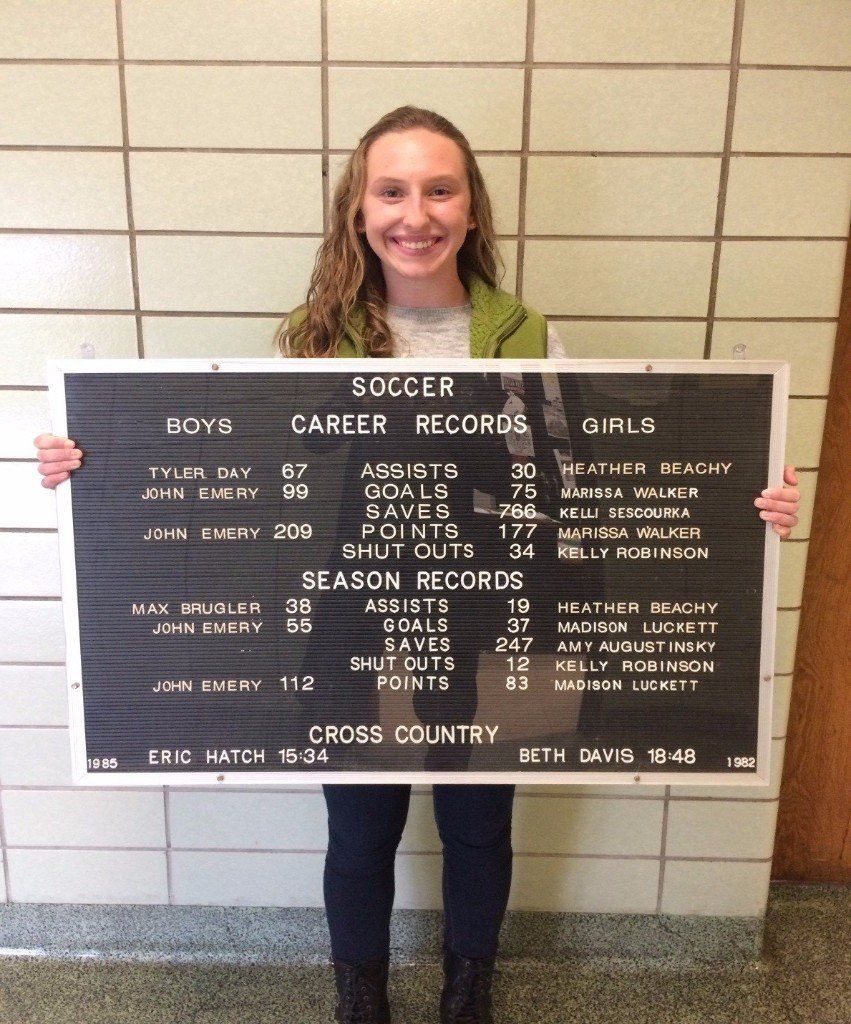 SOCCER
BOYS CAREER RECORDS GIRLS
TYLER DAY 67 ASSISTS 30 HEATHER BEACHY
JOHN EMERY 99 GOALS 75 MARISSA WALKER
SAVES 766 KELLI SESCOURKA
JOHN EMERY 209 POINTS 177 MARISSA WALKER
SHUT OUTS 34 KELLY ROBINSON
SEASON RECORDS
MAX BRUGLER 38 ASSISTS 19 HEATHER BEACHY
JOHN EMERY 55 GOALS 37 MADISON LUCKETT
SAVES 247 AMY AUGUSTINSKY
SHUT OUTS 12 KELLY ROBINSON
JOHN EMERY 112 POINTS 83 MADISON LUCKETT
CROSS COUNTRY
1985 ERIC HATCH 15:34 BETH DAVIS 18:48 1982